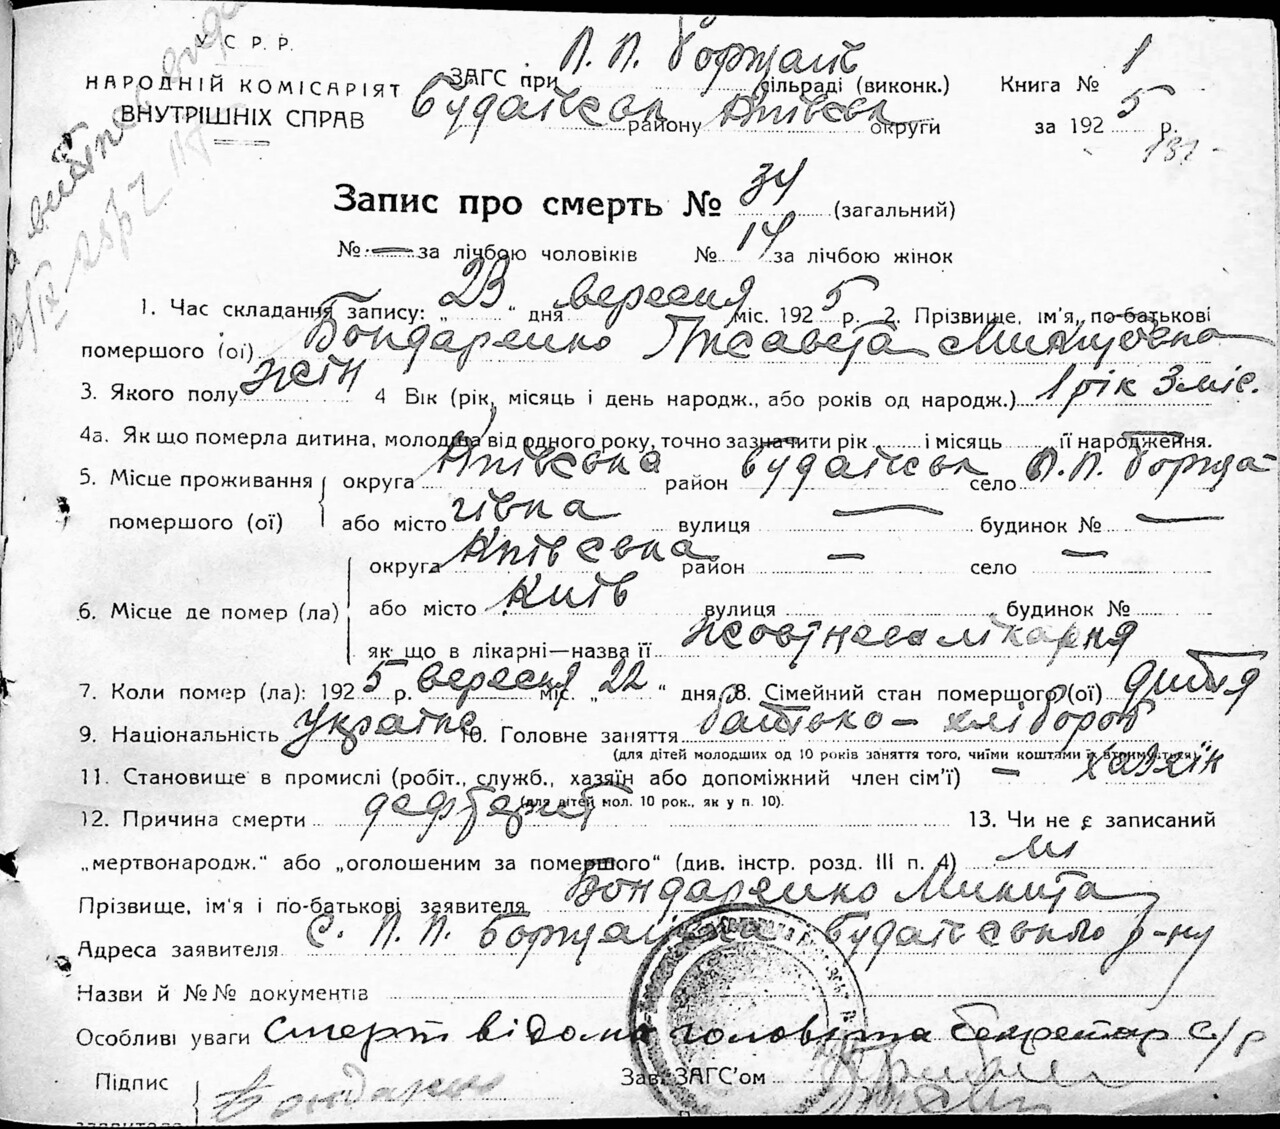 У С. Р. Р.
НАРОДНІЙ КОМІСАРІЯТ
ВНУТРІШНІХ СПРАВ
ЗАГС при П. П. Борщаг сільраді (виконк.)
Будаївськ району Київськ округи
Книга № 1
за 192 5 р.
132
Запис про смерть № 34 (загальний)
№ — за лічбою чоловіків № 14 за лічбою жінок
1. Час складання запису: „ 23 “ дня вересня міс. 192 5 р. 2. Прізвище, ім'я, по-батькові
помершого (ої) Бондаренко Лисавета Микитовна
3. Якого полу жін 4 Вік (рік, місяць і день народж., або років од народж.) 1 рік 3 міс.
4а. Як що померла дитина, молодша від одного року, точно зазначити рік і місяць її народження.
5. Місце проживання помершого (ої) округа Київська район Будаївськ село П. П. Борща
або місто гівка вулиця — будинок № —
6. Місце де помер (ла) округа Київська район — село —
або місто Київ вулиця будинок №
як що в лікарні—назва її Жовтнева лікарня
7. Коли помер (ла): 192 5 р. вересня міс. „ 22 “ дня 8. Сімейний стан помершого (ої) дитина
9. Національність Україн 10. Головне заняття батько – хлібороб
(для дітей молодших од 10 років заняття того, чиїми коштами їх втримується)
11. Становище в промислі (робіт., служб., хазяїн або допоміжний член сім'ї) – хазяїн
(для дітей мол. 10 рок., як у п. 10).
12. Причина смерти 13. Чи не є записаний
„мертвонародж.“ або „оголошеним за помершого“ (див. інстр. розд. III п. 4) ні
Прізвище, ім'я і по-батькові заявителя Бондаренко Микита
Адреса заявителя С. П. П. Борщагівка Будаївського р-ну
Назви й №№ документів
Особливі уваги Смерть відома голові та секретар с/р
Підпис заявителя Бондаренко Зав. ЗАГС'ом